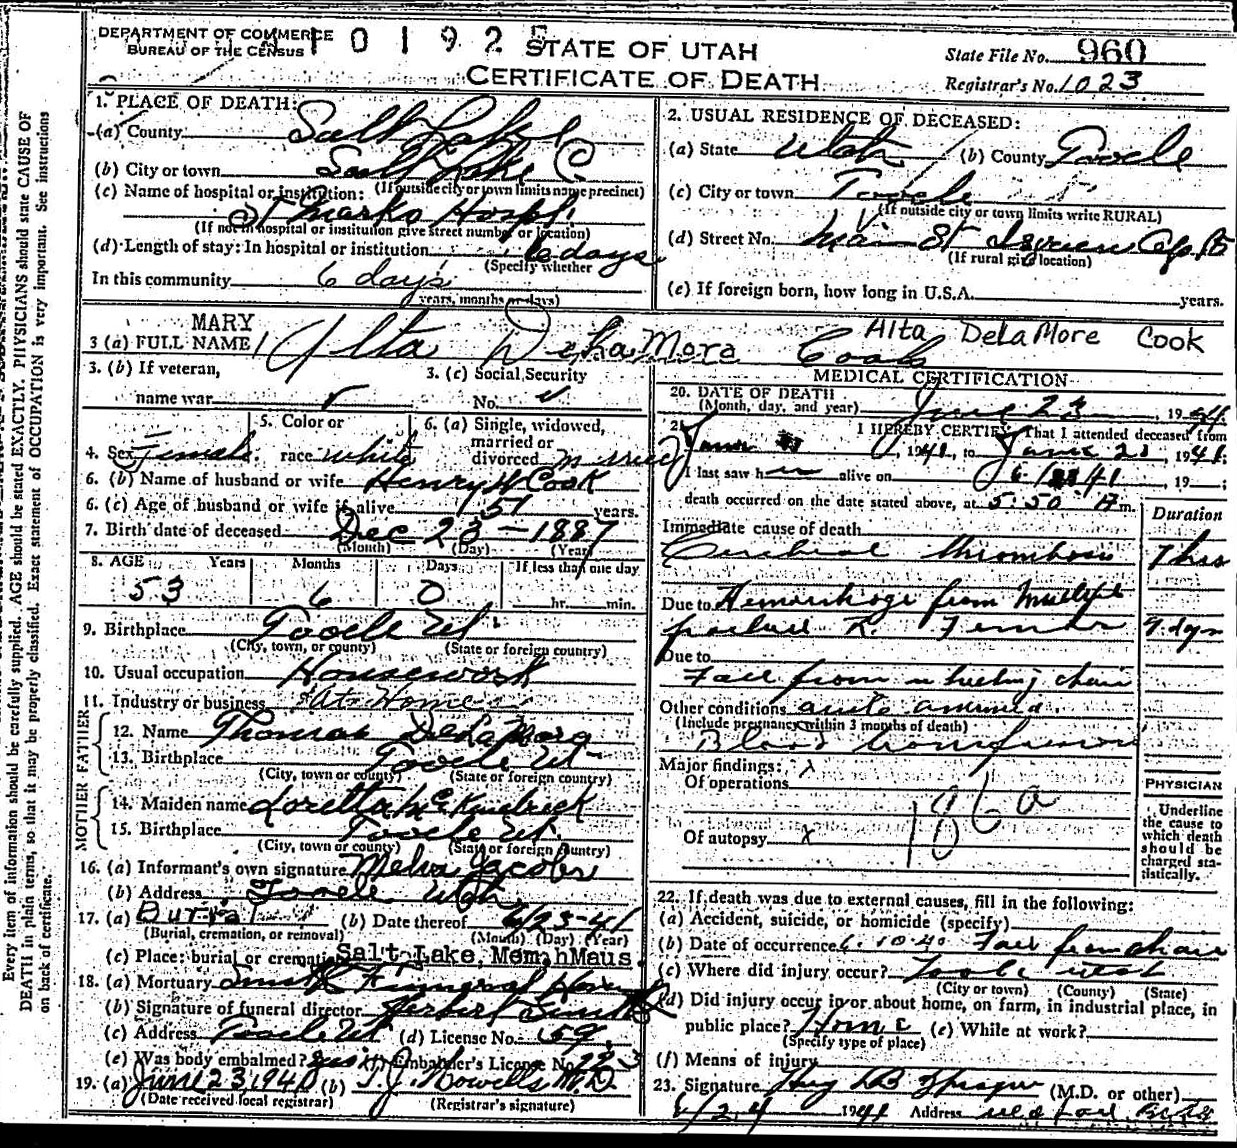 DEPARTMENT OF COMMERCE
BUREAU OF THE CENSUS
1 0 1 9 2
STATE OF UTAH
CERTIFICATE OF DEATH
State File No. 960
Registrar's No. 1023
Every item of information should be carefully supplied. AGE should be stated EXACTLY. PHYSICIANS should state CAUSE OF
DEATH in plain terms, so that it may be properly classified. Exact statement of OCCUPATION is very important. See instructions
on back of certificate.
1. PLACE OF DEATH:
(a) County Salt Lake
(b) City or town Salt Lake C
(If outside city or town limits name precinct)
(c) Name of hospital or institution:
St Marks Hospt.
(If not in hospital or institution give street number or location)
(d) Length of stay: In hospital or institution 6 days
(Specify whether
In this community 6 days
years, months or days)
2. USUAL RESIDENCE OF DECEASED:
(a) State Utah (b) County Tooele
(c) City or town Tooele
(If outside city or town limits write RURAL)
(d) Street No. Main St
(If rural give location)
(e) If foreign born, how long in U.S.A. years.
MARY
3 (a) FULL NAME Alta DeLaMora Cook
Alta DeLaMore Cook
3. (b) If veteran,
name war
3. (c) Social Security
No.
4. Sex Female.
5. Color or
race white
6. (a) Single, widowed,
married or
divorced married
6. (b) Name of husband or wife Henry W Cook
6. (c) Age of husband or wife if alive 51 years.
7. Birth date of deceased Dec 23 - 1887
(Month) (Day) (Year)
8. AGE Years Months Days If less than one day
53 6 0 hr. min.
9. Birthplace Tooele Ut.
(City, town, or county) (State or foreign country)
10. Usual occupation Housework
11. Industry or business At Home
FATHER
12. Name Thomas DeLaMora
13. Birthplace Tooele Ut
(City, town or county) (State or foreign country)
MOTHER
14. Maiden name Loretta
15. Birthplace Tooele Ut.
(City, town or county) (State or foreign country)
16. (a) Informant's own signature Melva Jacobs
(b) Address Tooele Utah
17. (a) Burial (b) Date thereof 6/25-41
(Burial, cremation, or removal) (Month) (Day) (Year)
(c) Place: burial or cremation Salt Lake, Mem‚hMaus.
18. (a) Mortuary Smith Funeral Home
(b) Signature of funeral director Herbert Smith
(c) Address Tooele Ut (d) License No. 59
(e) Was body embalmed? yes (f) Embalmer's License No. 223
19. (a) June 23, 1940 (b) T.J. Howells M.D.
(Date received local registrar) (Registrar's signature)
MEDICAL CERTIFICATION
20. DATE OF DEATH
(Month, day, and year) June 23, 1941
21. I HEREBY CERTIFY, That I attended deceased from
June 1941, to June 23 1941;
I last saw h alive on 6/ 41, 19 ;
death occurred on the date stated above, at 5:50 A m.
Duration
Immediate cause of death
Cerebral thrombosis 7 hrs
Due to Hemorrhage from Multiple
R. Femur 9 dys
Due to
Fall from chair
Other conditions acute anemia.
(Include pregnancy within 3 months of death)
Blood transfusions
Major findings:
Of operations
186a
Of autopsy x
PHYSICIAN
Underline
the cause to
which death
should be
charged sta-
tistically.
22. If death was due to external causes, fill in the following:
(a) Accident, suicide, or homicide (specify)
(b) Date of occurrence 6-10-40 Fall from chair
(c) Where did injury occur? Tooele Utah
(City or town) (County) (State)
(d) Did injury occur in or about home, on farm, in industrial place, in
public place? Home (e) While at work?
(Specify type of place)
(f) Means of injury
23. Signature (M.D. or other)
6/24 1941 Address Med